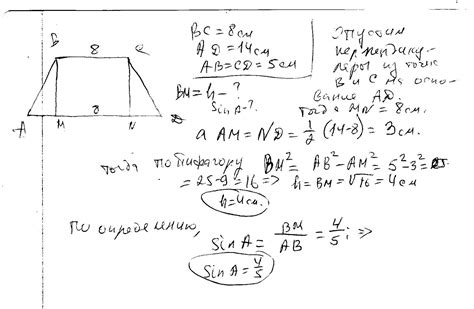 B
8
C
A
M
8
N
D
BC = 8см
AD = 14см
AB = CD = 5см
BM = h - ?
sin A - ?
Опустим
перпендику-
ляры из точек
B и C на осно-
вание AD.
тогда MN = 8см.
а AM = ND = 1/2 (14-8) = 3см.
тогда по Пифагору BM² = AB² - AM² = 5² - 3² =
= 25 - 9 = 16 => h = BM = √16 = 4см
h = 4см.
По определению,
sin A = BM/AB = 4/5; =>
sin A = 4/5